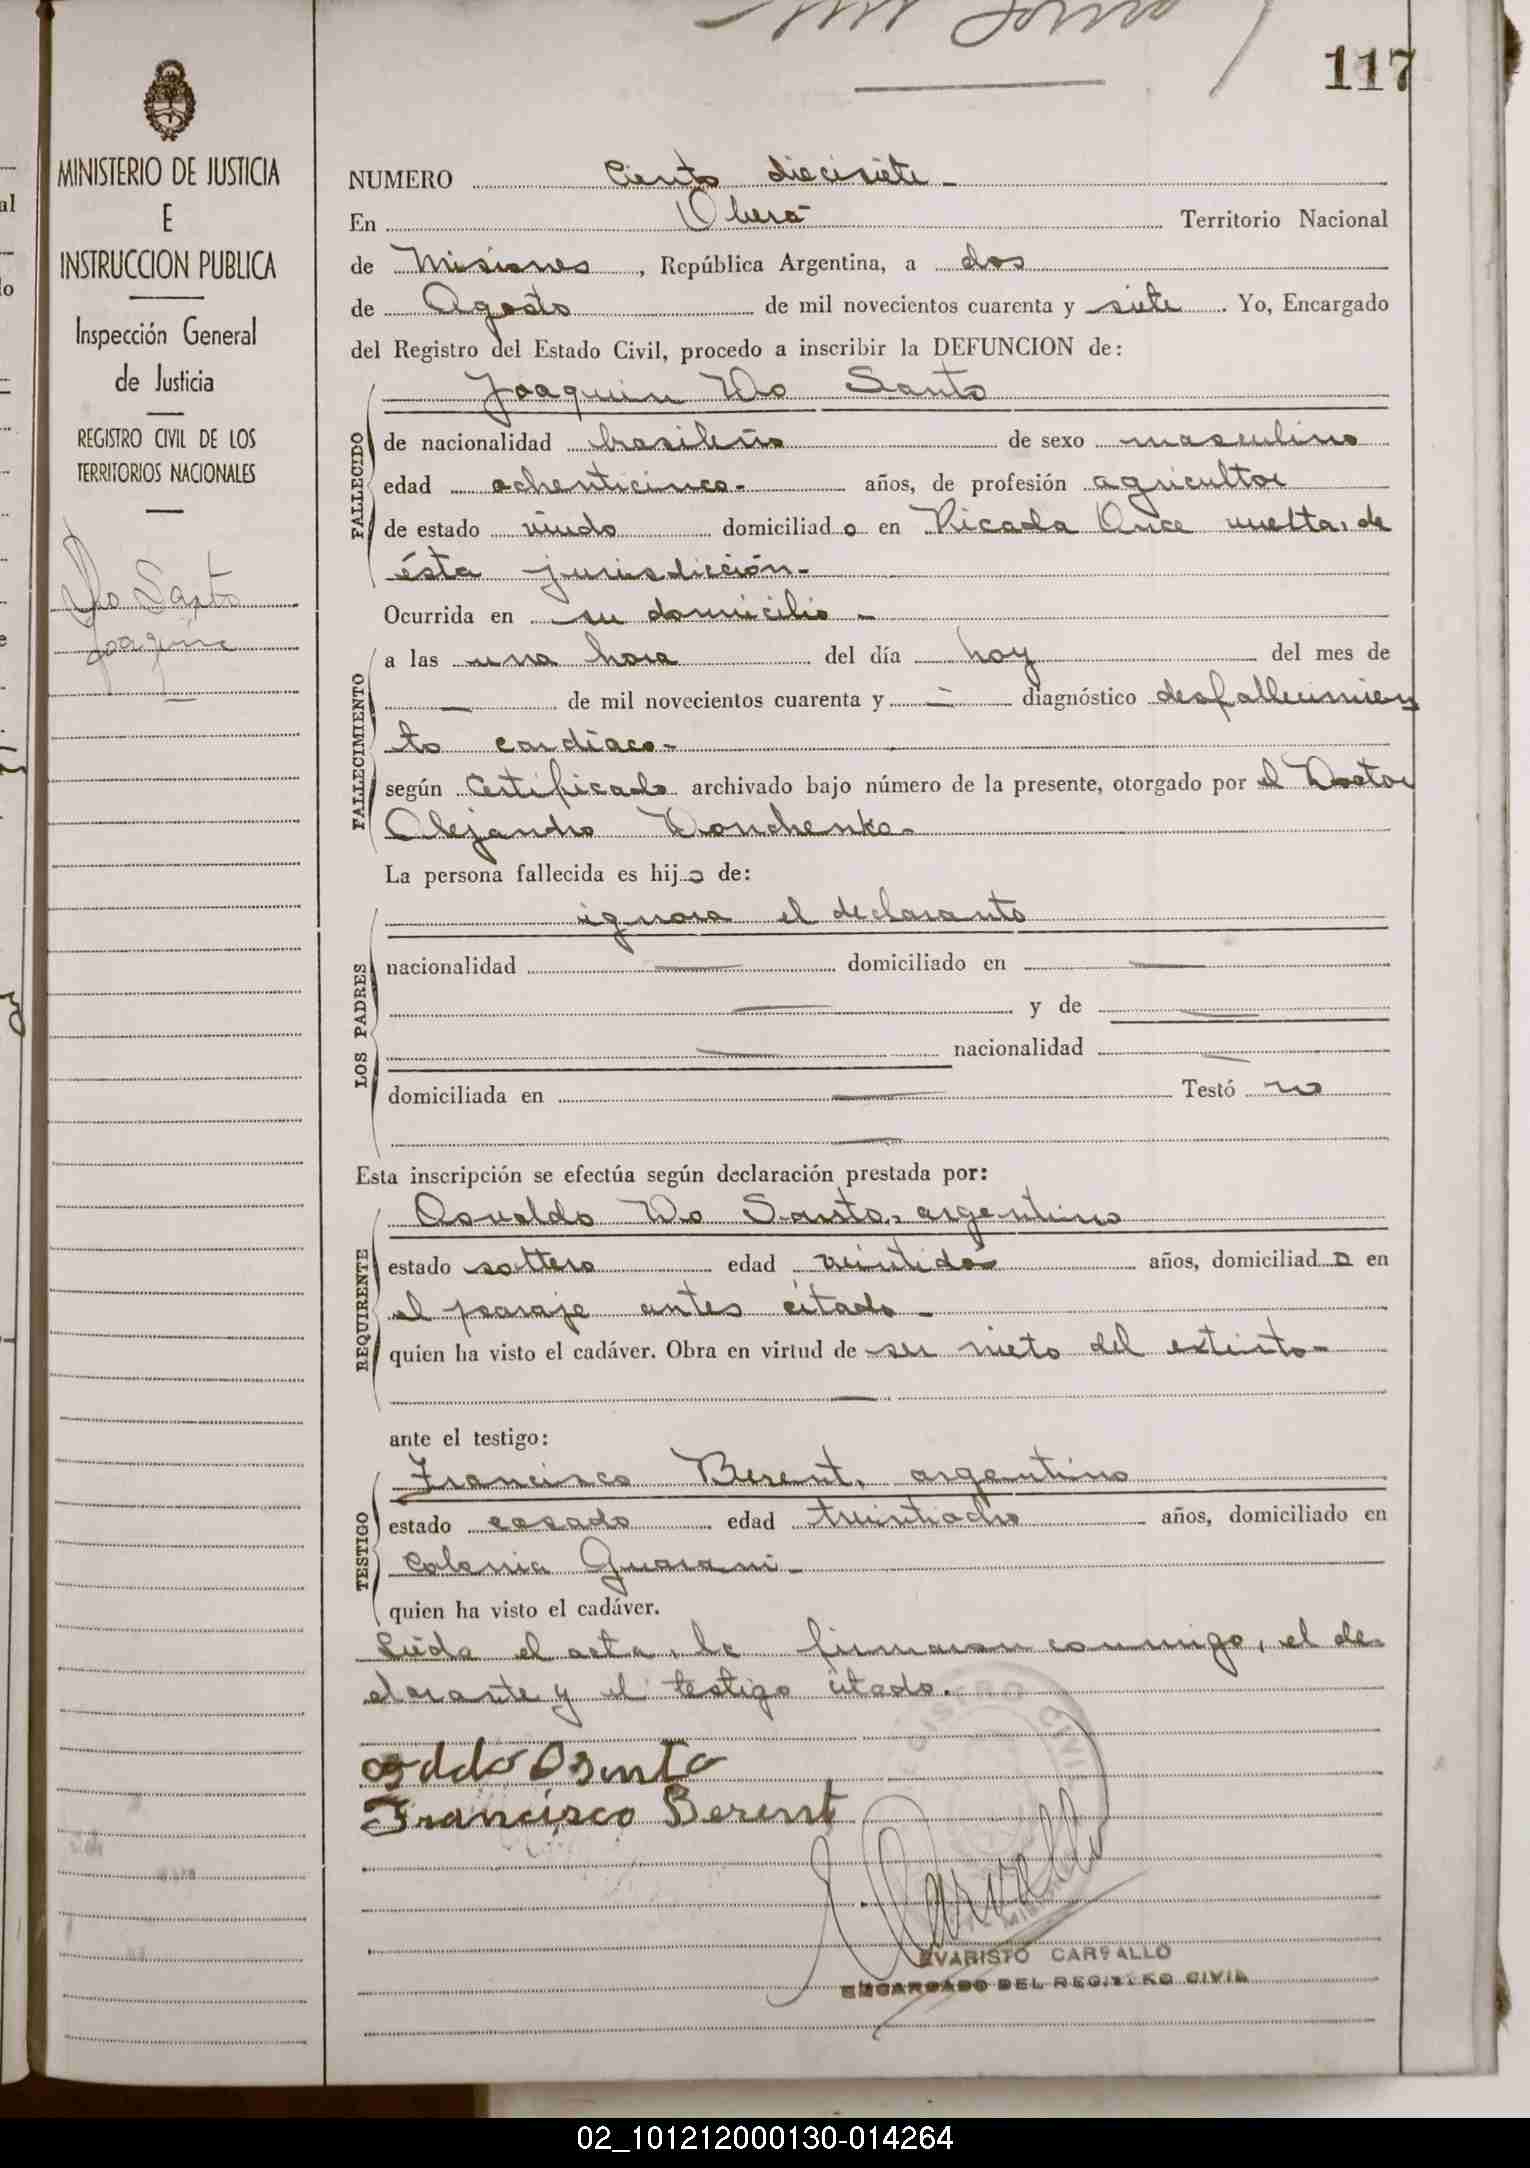 117
MINISTERIO DE JUSTICIA
E
INSTRUCCION PUBLICA
Inspección General
de Justicia
REGISTRO CIVIL DE LOS
TERRITORIOS NACIONALES
Do Santo
Joaquin
NUMERO Ciento diecisiete -
En Oberá Territorio Nacional
de Misiones, República Argentina, a dos
de Agosto de mil novecientos cuarenta y siete. Yo, Encargado
del Registro del Estado Civil, procedo a inscribir la DEFUNCION de:
Joaquin Do Santo
FALLECIDO
de nacionalidad brasileño de sexo masculino
edad ochenticinco- años, de profesión agricultor
de estado viudo domiciliado en Picada Once vueltas de
ésta jurisdicción-
Ocurrida en su domicilio -
FALLECIMIENTO
a las una hora del día hoy del mes de
— de mil novecientos cuarenta y — diagnóstico desfallecimien
to cardíaco-
según Certificado archivado bajo número de la presente, otorgado por el Doctor
Alejandro Donchenko-
La persona fallecida es hijo de:
LOS PADRES
ignora el declarante
nacionalidad — domiciliado en —
— y de —
— nacionalidad —
domiciliada en — Testó no
—
Esta inscripción se efectúa según declaración prestada por:
REQUIRENTE
Osvaldo Do Santo, argentino
estado soltero edad veintidós años, domiciliado en
el paraje antes citado -
quien ha visto el cadáver. Obra en virtud de ser nieto del extinto-
—
ante el testigo:
TESTIGO
Francisco Berent, argentino
estado casado edad treintiocho años, domiciliado en
Colonia Guaraní-
quien ha visto el cadáver.
Leída el acta, la firmaron conmigo, el de-
clarante y el testigo citado.
Francisco Berent
REGISTRO CIVIL
EVARISTO CARVALLO
ENCARGADO DEL REGISTRO CIVIL
02_101212000130-014264